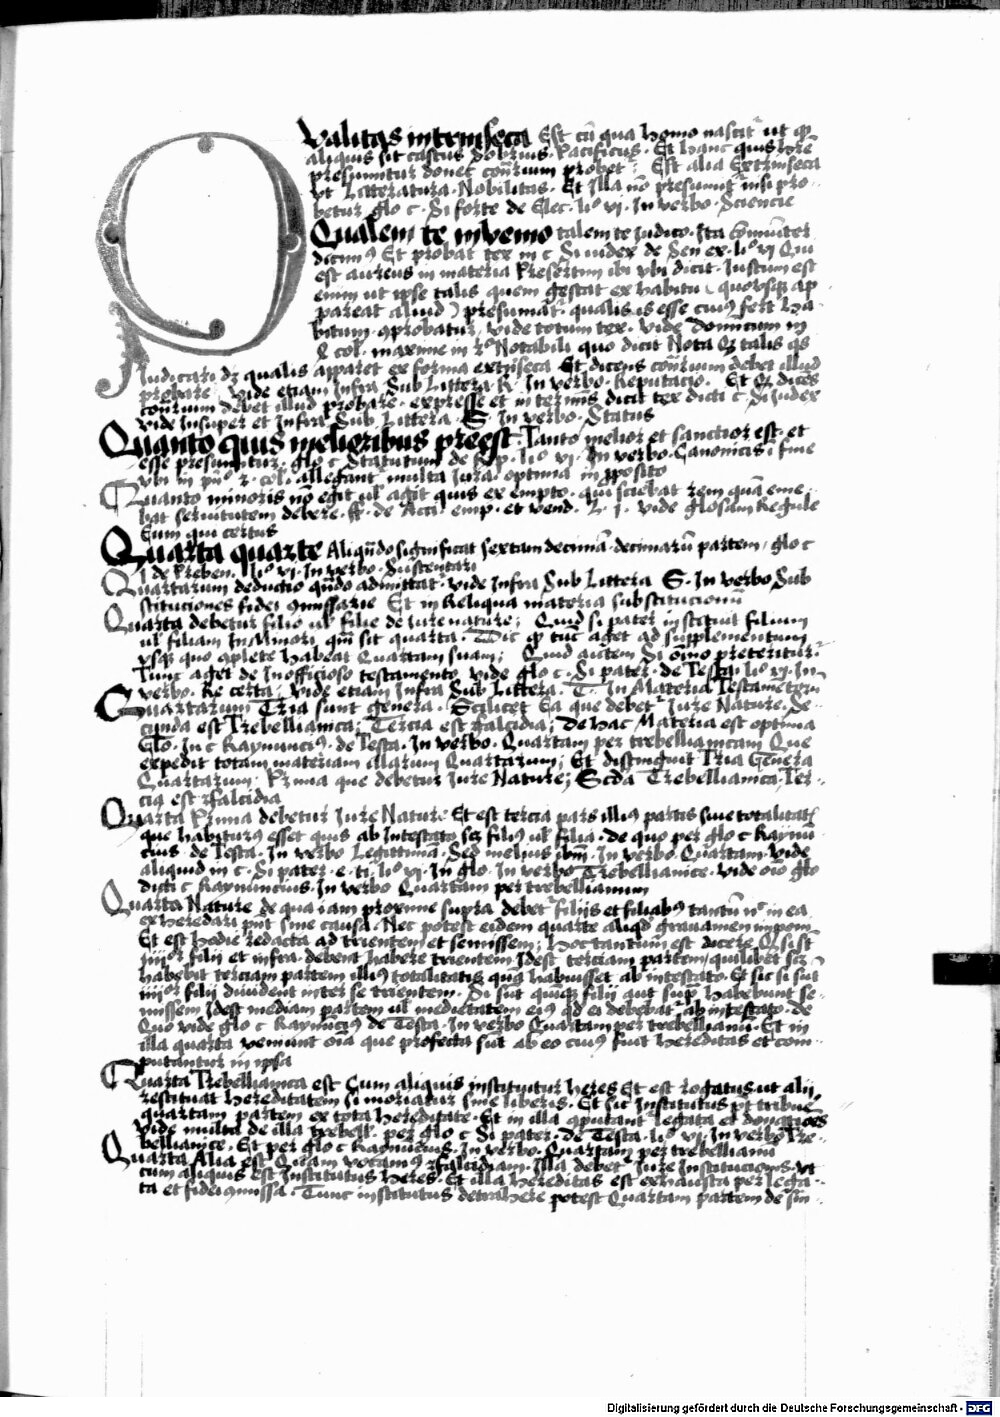 Qualitas intrinseca Est cū qua homo nascit ut qͥ
aliquis sit castus Sobrius. Pacificus. Et hanc quis hre
presumitur donec cont̄rium probet. Est alia Extrinseca
vt Litteratura. Nobilitas. Et Illa nō presumit nisi pro-
betur glo c. Si forte de Elec. li° vi. In verbo. Sciencie
Qualem te invenio talem te Iudico. Ita cōmuniter
dicimꝰ Et probat tex in c Si iudex de Sen ex. li° vi Qui
est aureus in materia Presertim ibi vbi dicit. Iustum est
enim ut ipse talis quem gestat ex habitu (quovsqꝫ ap
pareat aliud) presumat. qualis is esse cuiꝰ fert ha-
bitum. ꝓprobatur. vide totum tex. vide Domicum in
col. maxime in 2° Notabili quo dicit Nota qꝫ talis qs
Iudicari dꝫ qualis apparet ex forma extrinseca Et dicens cont̄rium debet illud
probare. Vide etiam Infra Sub Littera R. In verbo. Reputacio. Et qꝫ dices
cont̄rium debet illud probare. expresse et in terminis dicit tex dicti c. Si Iudex
vide Insuper et Infra Sub Littera. S. In verbo. Status
Quanto quis melioribus preest. Tanto melior et sanctior est. et
esse presumitur. glo c Statutum de Rep. li° vi. In verbo. Canonicis. in fine
vbi in pn° 2. col. allegant multa Iura. optima in proposito
Quanto minoris nō egit ul agit quis ex empto. qui sciebat rem quā eme-
bat servitutem debere. ff. de Acti. emp. et vend. L. j. vide glosam Regule
Cum qui certus
Quarta quarte Aliqn̄do significat sextam decimā. decimarū partem. glo c
j de Preben. li° vi. In verbo. Sustentari
Quartarum deductio qn̄do admittat. vide Infra Sub Littera S. In verbo Sub
stituciones fidei cōmissarie Et in Reliqua materia substitucionū
Quarta debetur filio ul filie de Iure nature; Quid si pater instituit filium
ul filiam In Minori qm̄ sit quarta. Dic qͥ tūc aget ad supplementum
vsqꝫ quo cōplete habeat Quartam suam; Quid autem Si om̄o preteritur
Tunc aget de Inofficioso testamento vide glo c. Si pater. de Testa. li° vi. In
verbo. Re certa; Vide etiam Infra Sub Littera. T. In Materia Testamētorū
Quartarum Tria sunt genera. Scilicet Ea que debet Iure Nature. Se-
cunda est Trebellianica; Tercia est falcidia; De hac Materia est optima
Glo. In c Raynunciꝰ. de Testa. In verbo. Quartam per trebellianicam Que
expedit totam materiam illarum Quartarum; Et distinguit Tria Genera
Quartarum Prima que debetur Iure Nature; Scd̄a Trebellianica. Ter-
cia est falcidia
Quarta Prima debetur Iure Nature Et est tercia pars illiꝰ partis sive totalitat
que habiturꝰ esset quis ab Intestato scꝫ filiꝰ ul filia. de quo per glo c Raynū
cius de Testa. In verbo Legittimā. Sed melius ibm̄. In verbo. Quartam. vide
aliquid in c. Si pater. e. ti. li° vi. In glo. In verbo Trebellianice. vide oīo glo
dicti c Raynuncius. In verbo Quartam per trebellianium
Quarta Nature de qua iam proxime supra debet filiis et filiabꝰ tantū nͥ in ea
exheredari pn̄t sine causa. Nec potest eidem quarte aliqd gravamen imponi
Et est hodie redacta ad trientem et semissem; Hoc tantum est dicere Qꝫ si st̄
iiiior filii et infra. debent habere trientem Idest terciam partem, quilibet scꝫ
habebit terciam partem illiꝰ totalitatis quā habuisset ab intestato. Et sic si sūt
iiiior filii dividunt inter se trientem. Si sūt quiqꝫ filii aut sup̄ habebunt se-
missem Idest mediam partem ul medietatem eiꝰ qd ei debebat ab intestato. de
Quo vide glo c Raynūciꝰ de Testa. In verbo Quartam per trebellianū. Et in
illa quarta veniunt oīa que profecta sūt ab eo cuiꝰ fuit hereditas et com-
putantur in ipsa
Quarta Trebellianica est Cum aliquis instituitur heres Et est rogatus ut alii
restituat hereditatem si moriatur sine liberis. Et sic Institutus pt̄ tribue
quartam partem ex tota hereditate. Et in illa cōputant legata et donatiōes
vide multa de illa trebell. per glo c Si pater. de Testa. li° vi. In verbo Tre-
bellianice. Et per glo c Raynucius. In verbo. Quartam per trebellianū
Quarta Alia est Quam vocamꝰ falcidiam. Illa debet Iure Institucionis. vt
cum aliquis est Institutus heres. Et illa hereditas est exhausta per lega-
ta et fidei cōmissa. Tunc institutus detrahere potest Quartam partem de sin-
Digitalisierung gefördert durch die Deutsche Forschungsgemeinschaft - DFG